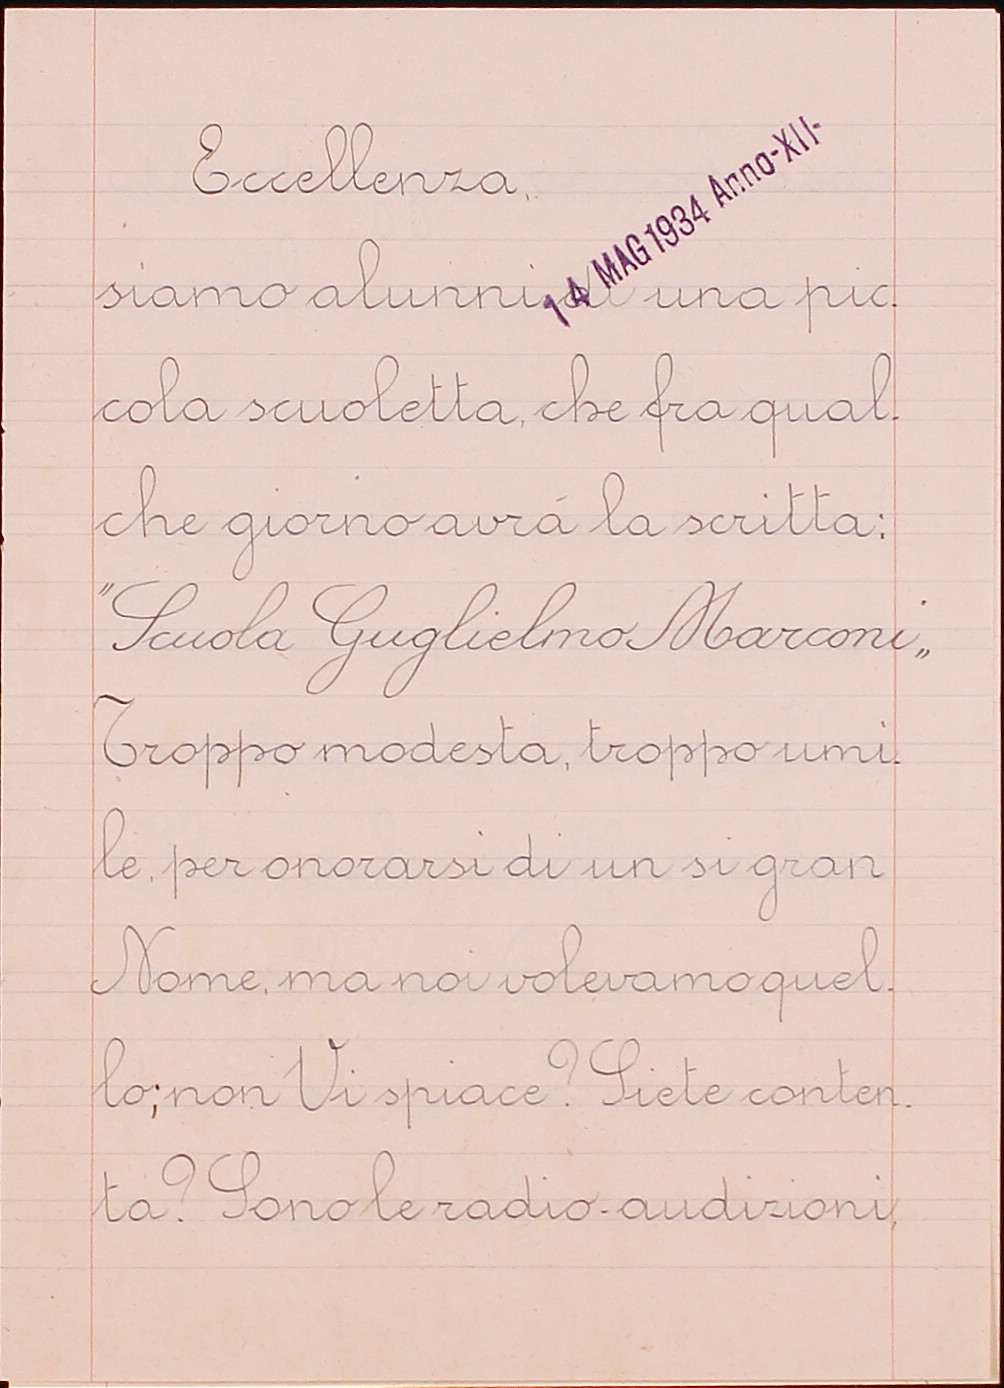 Eccellenza,
14 MAG 1934 Anno-XII-
siamo alunni di una pic.
cola scuoletta, che fra qual.
che giorno avrá la scritta:
"Scuola Guglielmo Marconi„
Troppo modesta, troppo umi.
le, per onorarsi di un si gran
Nome, ma noi volevamo quel.
lo; non Vi spiace? Siete conten.
ta? Sono le radio-audizioni,